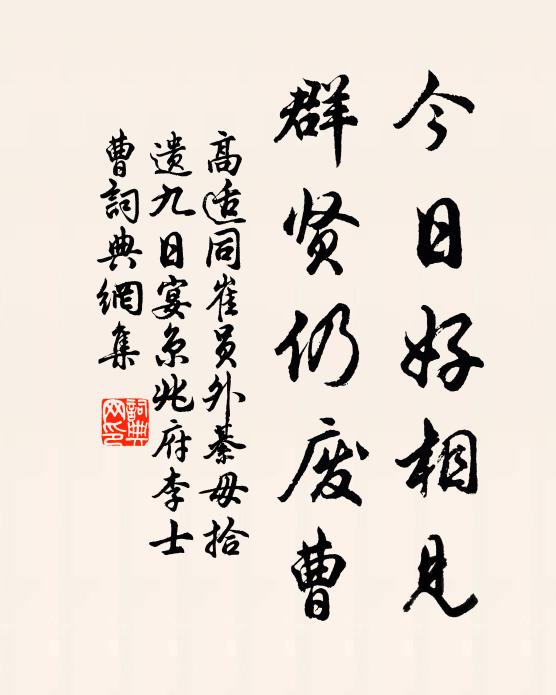 今日好相見
群贤仍废曹
高适同崔员外綦毋拾
遗九日宴京兆府李士
曹詞典網集
詞典網印